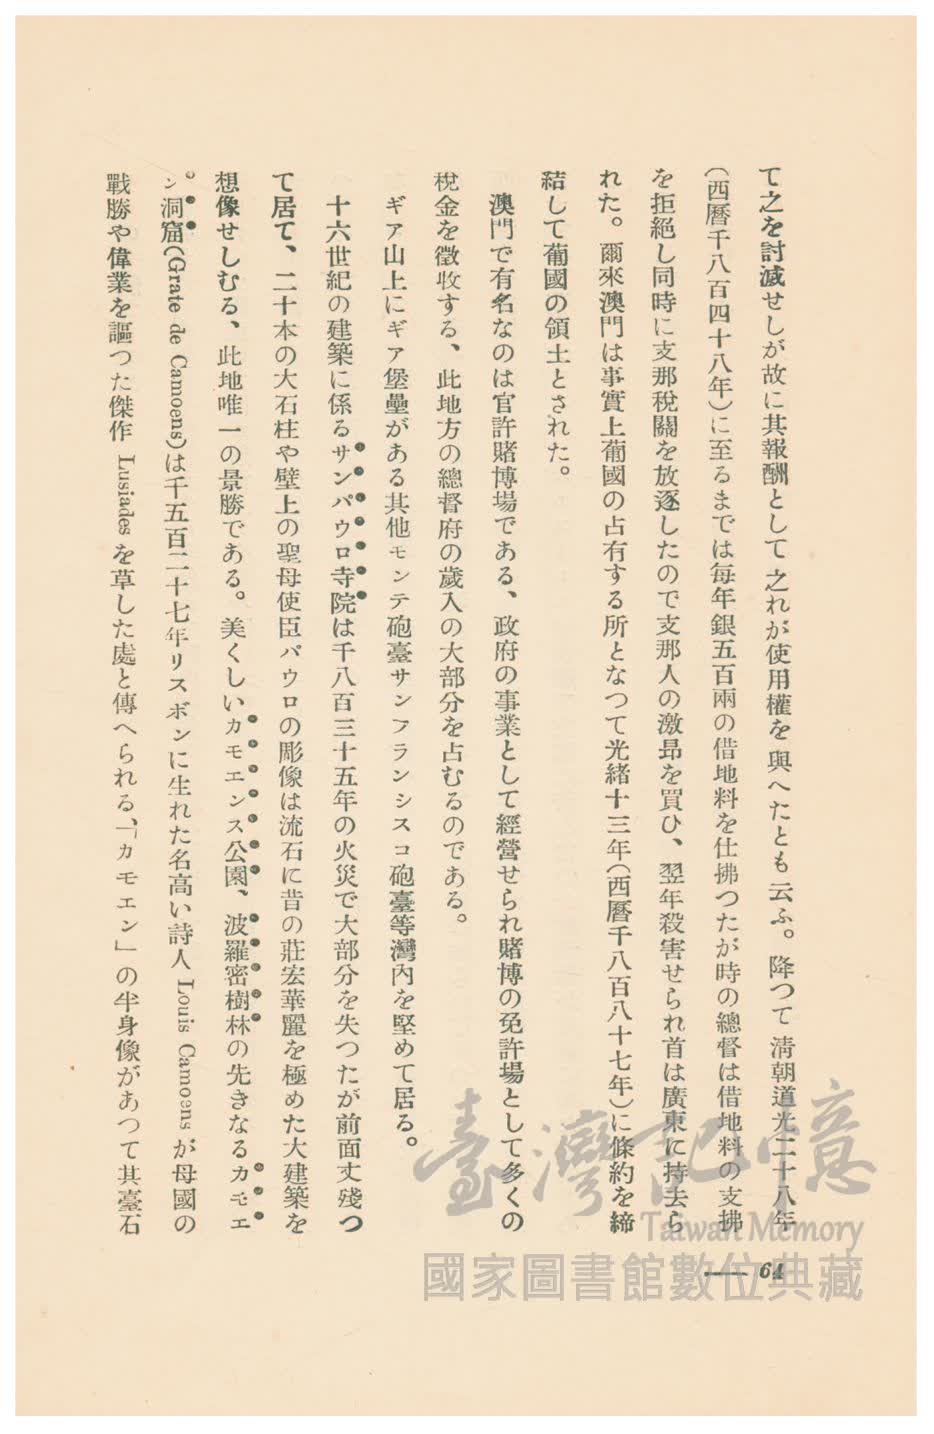 て之を討滅せしが故に其報酬として之れが使用權を與へたとも云ふ。降つて清朝道光二十八年
(西曆千八百四十八年)に至るまでは每年銀五百兩の借地料を仕拂つたが時の總督は借地料の支拂
を拒絕し同時に支那稅關を放逐したので支那人の激昂を買ひ、翌年殺害せられ首は廣東に持去ら
れた。爾來澳門は事實上葡國の占有する所となつて光緒十三年(西曆千八百八十七年)に條約を締
結して葡國の領土とされた。
澳門で有名なのは官許賭博場である、政府の事業として經營せられ賭博の免許場として多くの
稅金を徵收する、此地方の總督府の歲入の大部分を占むるのである。
ギア山上にギア堡壘がある其他モンテ砲臺サンフランシスコ砲臺等灣內を堅めて居る。
十六世紀の建築に係るサンパウロ寺院は千八百三十五年の火災で大部分を失つたが前面丈殘つ
て居て、二十本の大石柱や壁上の聖母使臣パウロの彫像は流石に昔の莊宏華麗を極めた大建築を
想像せしむる、此地唯一の景勝である。美くしいカモエンス公園、波羅密樹林の先きなるカモエ
ン洞窟(Grate de Camoens)は千五百二十七年リスボンに生れた名高い詩人 Louis Camoens が母國の
戰勝や偉業を謳つた傑作 Lusiades を草した處と傳へられる、「カモエン」の半身像があつて其臺石
64
臺灣記憶
Taiwan Memory
國家圖書館數位典藏